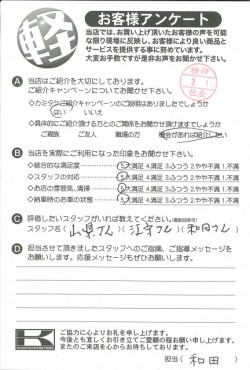 軽
お客様アンケート
当店では、お買上げ頂いたお客様の声を可能
な限り現場に反映し、お客様により良い商品と
サービスを提供する事に努めています。
大変お手数ですが是非お声をお聞かせ下さい。
検印
社長
A 当店はご紹介を大切にしております。
ご紹介キャンペーンについてお聞かせ下さい。
◇カミタケご紹介キャンペーンのご説明はありましたでしょうか
はい いいえ
◇具体的にご紹介頂ける方とのご関係をお聞かせ頂けますでしょうか
ご親族 ご友人 職場の方 機会があれば紹介したい
B 当店を実際にご利用になった印象をお聞かせ下さい。
◇総合的な満足度 5.大満足 4.満足 3.ふつう 2.やや不満 1.不満
◇スタッフの対応 5.大満足 4.満足 3.ふつう 2.やや不満 1.不満
◇お店の雰囲気、清掃 5.大満足 4.満足 3.ふつう 2.やや不満 1.不満
◇納車時のお車の状態 5.大満足 4.満足 3.ふつう 2.やや不満 1.不満
C 評価したいスタッフがいれば教えてください。
スタッフ名(山県さん)(江守さん)(和田さん)
D 担当させて頂きましたスタッフへのご指摘、ご指導メッセージを
お願いします。応援メッセージもぜひお願いします。
K
ご協力に心よりお礼を申し上げます。
今後とも宜しくお引き立てご愛顧の程お願い申し上げます。
またのご来店を心からお待ちしております。
担当(和田)